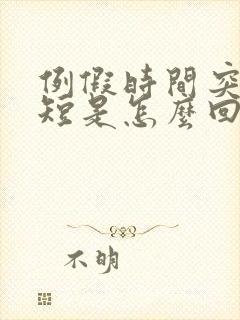 例假時間突
短是怎麼回
不明